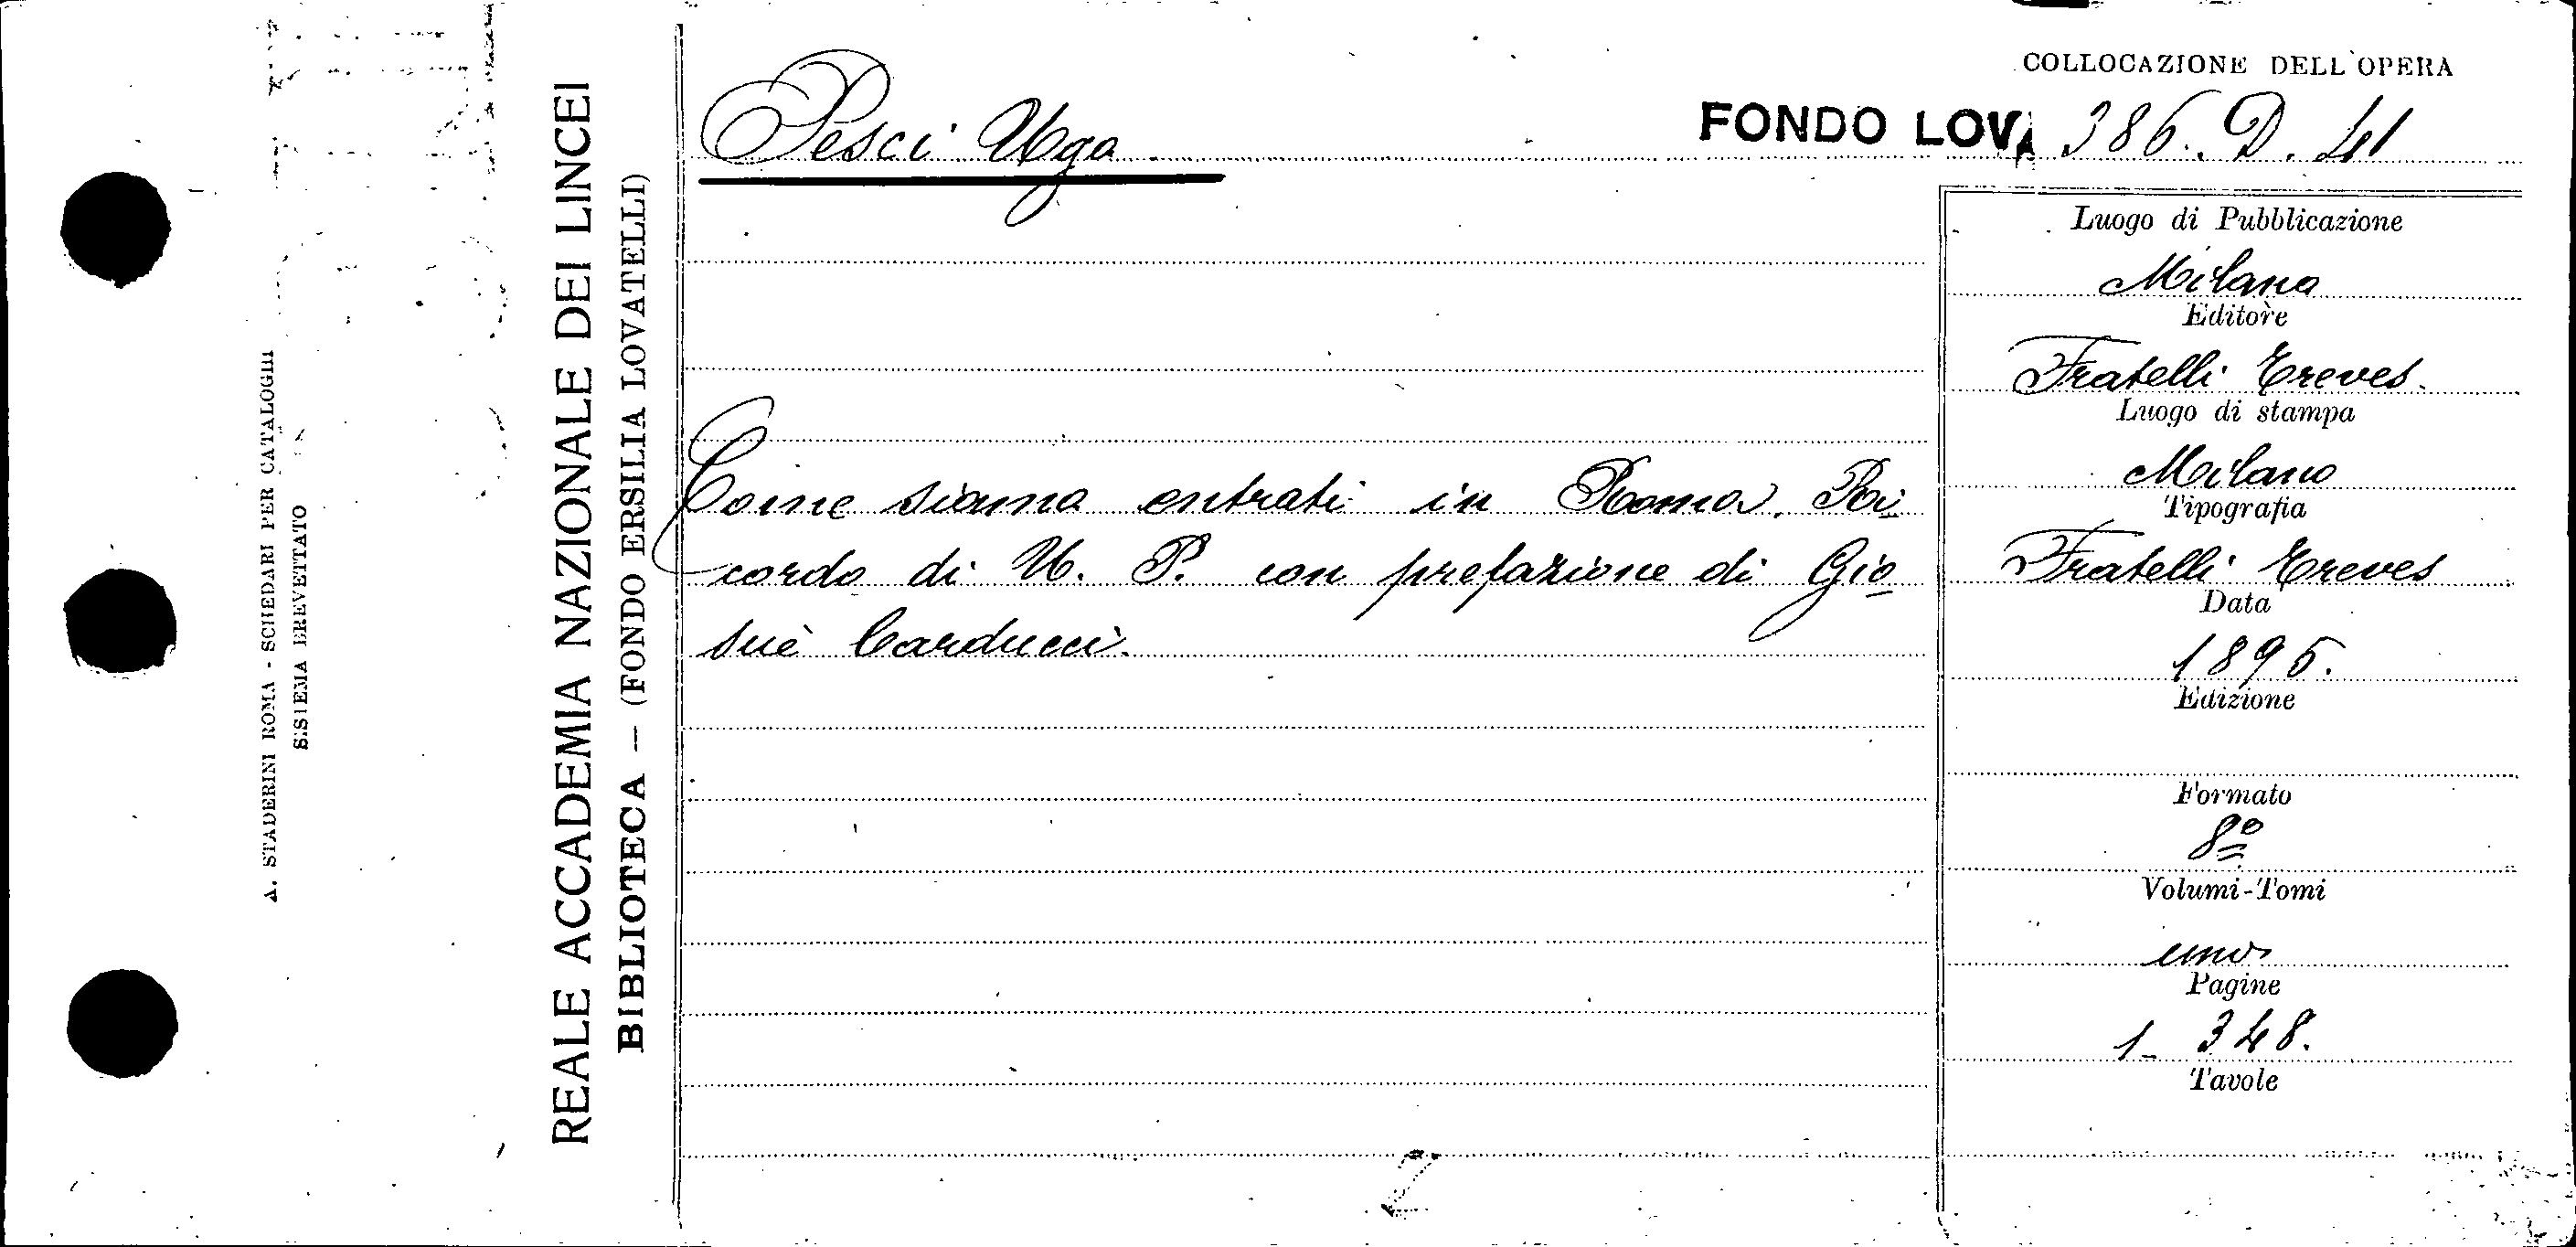 COLLOCAZIONE DELL'OPERA
FONDO LOVA 386. D. 41
Pesci Ugo
Come siamo entrati in Roma. Ri
cordo di U. P. con prefazione di Gio
suè Carducci.
Luogo di Pubblicazione
Milano
Editore
Fratelli Treves.
Luogo di stampa
Milano
Tipografia
Fratelli Treves
Data
1895.
Edizione
Formato
8º
Volumi-Tomi
uno
Pagine
1_ 348.
Tavole
REALE ACCADEMIA NAZIONALE DEI LINCEI
BIBLIOTECA — (FONDO ERSILIA LOVATELLI)
A. STADERINI ROMA - SCHEDARI PER CATALOGHI
SISTEMA BREVETTATO